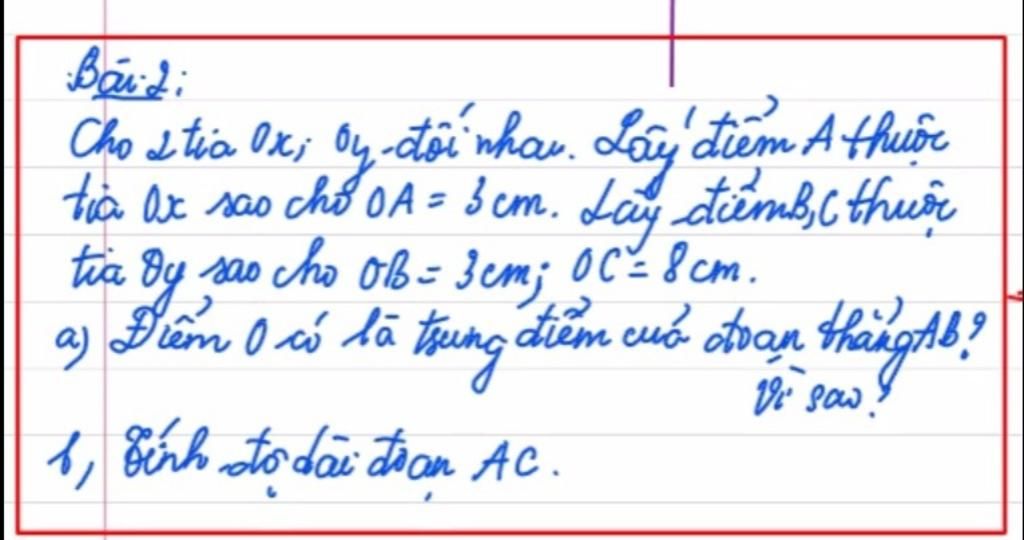 Bài 2:
Cho 2 tia Ox; Oy đối nhau. Lấy điểm A thuộc
tia Ox sao cho OA = 3 cm. Lấy điểm B,C thuộc
tia Oy sao cho OB = 3cm; OC = 8cm.
a) Điểm O có là trung điểm của đoạn thẳng AB?
Vì sao?
b, Tính độ dài đoạn AC.